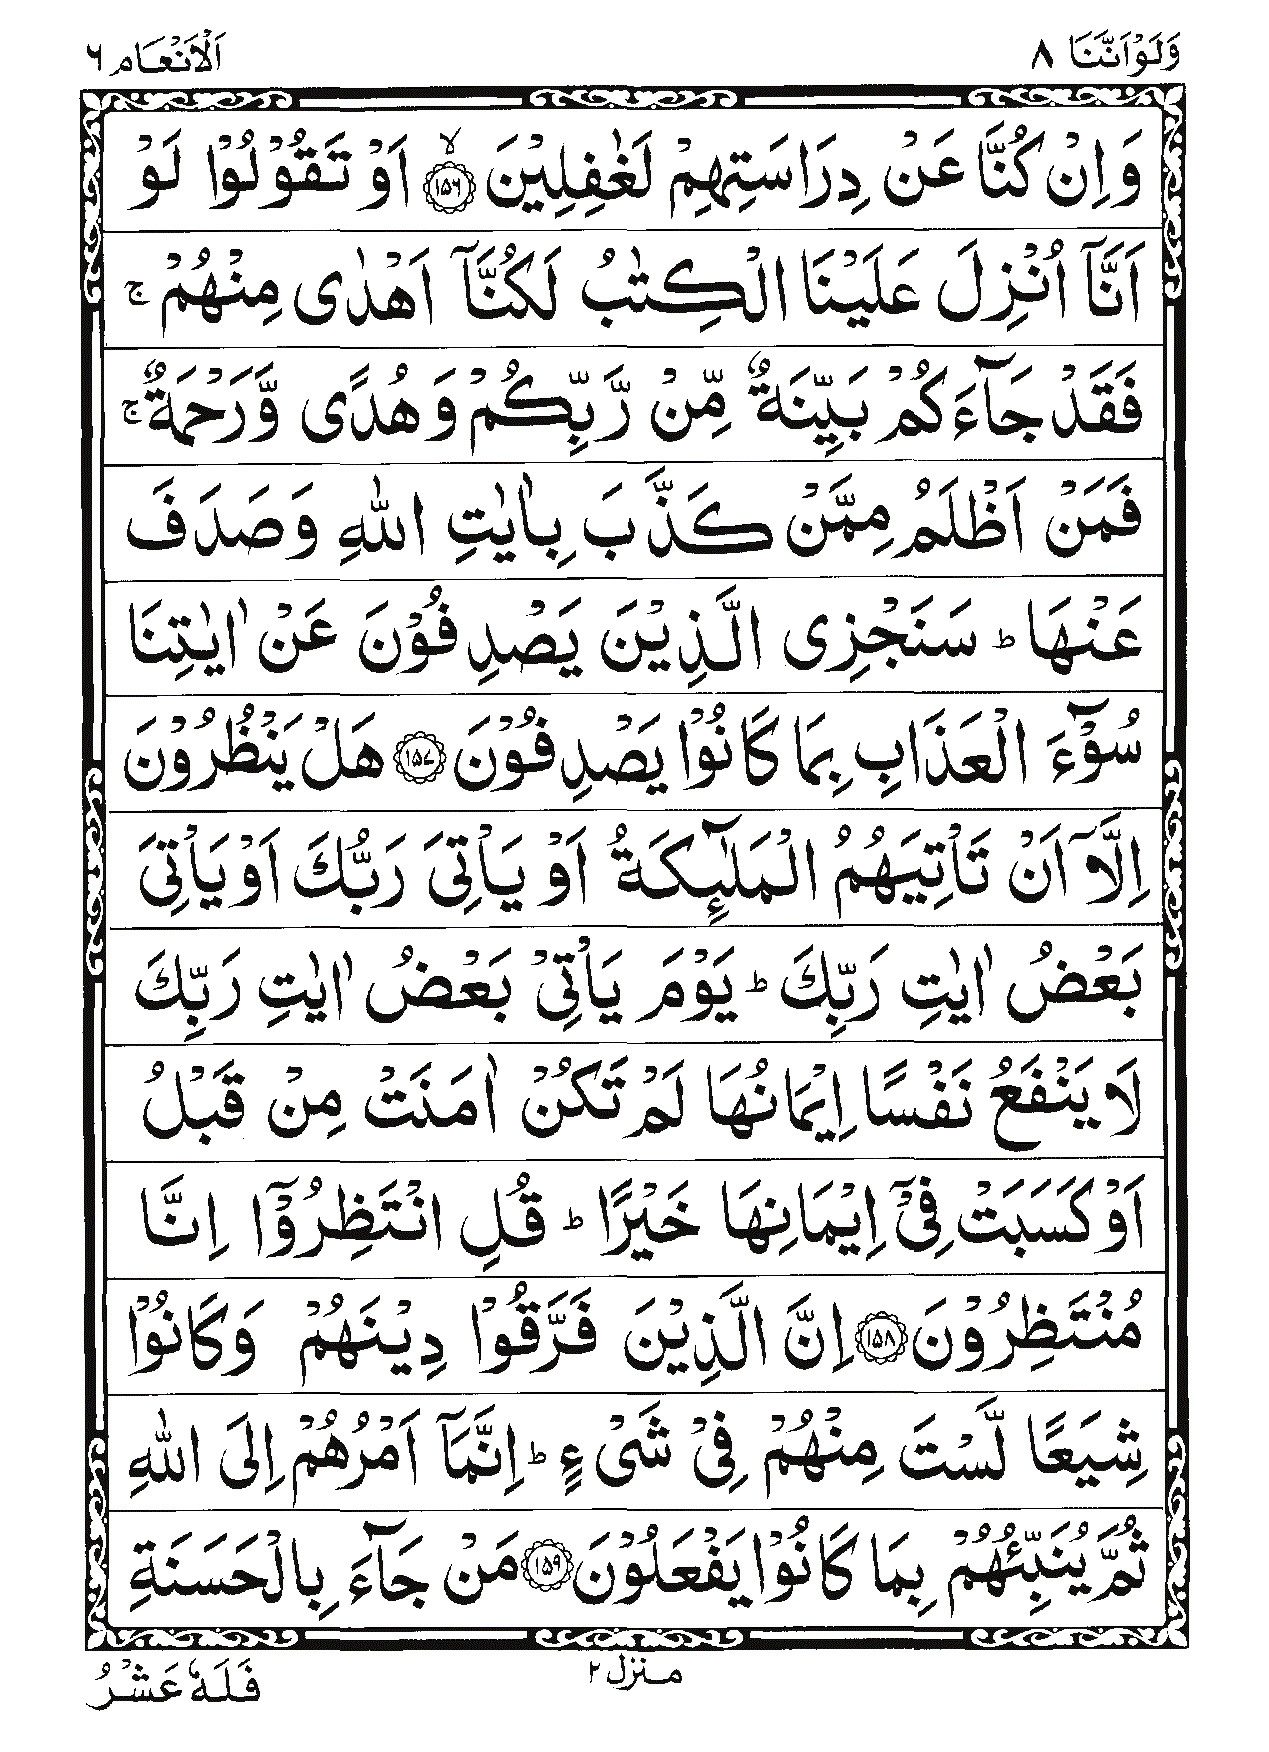 وَلَوْاَنَّنَا ۸
اَلْاَنْعَام ٦
وَاِنْ كُنَّا عَنْ دِرَاسَتِهِمْ لَغٰفِلِيْنَ ۙ﴿۱۵۶﴾ اَوْ تَقُوْلُوْا لَوْ
اَنَّآ اُنْزِلَ عَلَيْنَا الْكِتٰبُ لَكُنَّآ اَهْدٰى مِنْهُمْ ۚ
فَقَدْ جَآءَكُمْ بَيِّنَةٌ مِّنْ رَّبِّكُمْ وَهُدًى وَّرَحْمَةٌ ۚ
فَمَنْ اَظْلَمُ مِمَّنْ كَذَّبَ بِاٰيٰتِ اللّٰهِ وَصَدَفَ
عَنْهَا ؕ سَنَجْزِى الَّذِيْنَ يَصْدِفُوْنَ عَنْ اٰيٰتِنَا
سُوْٓءَ الْعَذَابِ بِمَا كَانُوْا يَصْدِفُوْنَ ﴿۱۵۷﴾ هَلْ يَنْظُرُوْنَ
اِلَّآ اَنْ تَاْتِيَهُمُ الْمَلٰٓئِكَةُ اَوْ يَاْتِىَ رَبُّكَ اَوْ يَاْتِىَ
بَعْضُ اٰيٰتِ رَبِّكَ ؕ يَوْمَ يَاْتِىْ بَعْضُ اٰيٰتِ رَبِّكَ
لَا يَنْفَعُ نَفْسًا اِيْمَانُهَا لَمْ تَكُنْ اٰمَنَتْ مِنْ قَبْلُ
اَوْ كَسَبَتْ فِىْٓ اِيْمَانِهَا خَيْرًا ؕ قُلِ انْتَظِرُوْٓا اِنَّا
مُنْتَظِرُوْنَ ﴿۱۵۸﴾ اِنَّ الَّذِيْنَ فَرَّقُوْا دِيْنَهُمْ وَكَانُوْا
شِيَعًا لَّسْتَ مِنْهُمْ فِىْ شَىْءٍ ؕ اِنَّمَآ اَمْرُهُمْ اِلَى اللّٰهِ
ثُمَّ يُنَبِّئُهُمْ بِمَا كَانُوْا يَفْعَلُوْنَ ﴿۱۵۹﴾ مَنْ جَآءَ بِالْحَسَنَةِ
منزل ۲
فَلَهٗ عَشْرُ